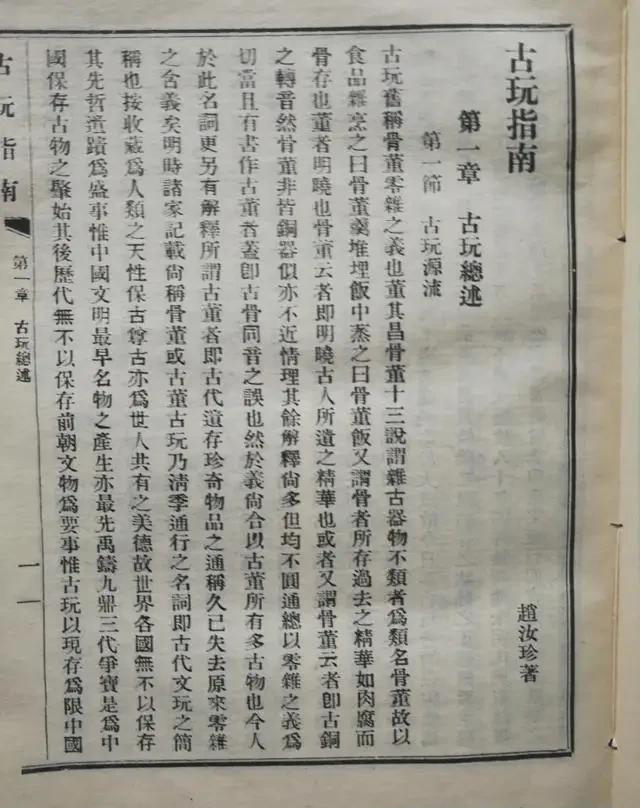 古玩指南
趙汝珍著
第一章 古玩總述
第一節 古玩源流
古玩舊稱骨董零雜之義也董其昌骨董十三說謂雜古器物不類者爲類名骨董故以
食品雜烹之曰骨董羹堆埋飯中蒸之曰骨董飯又謂骨者所存過去之精華如肉腐而
骨存也董者明曉也骨董云者即明曉古人所遺之精華也或者又謂骨董云者卽古銅
之轉音然骨董非皆銅器似亦不近情理其餘解釋尙多但均不圓通總以零雜之義爲
切當且有書作古董者蓋卽古骨同音之誤也然於義尙合以古董所有多古物也今人
於此名詞更另有解釋所謂古董者即古代遺存珍奇物品之通稱久已失去原來零雜
之含義矣明時諸家記載尙稱骨董或古董古玩乃淸季通行之名詞即古代文玩之簡
稱也按收藏爲人類之天性保古尊古亦爲世人共有之美德故世界各國無不以保存
其先哲遺蹟爲盛事惟中國文明最早名物之產生亦最先禹鑄九鼎三代爭寶是爲中
國保存古物之聚始其後歷代無不以保存前朝文物爲要事惟古玩以現存爲限中國
古玩指南
第一章 古玩總述
一